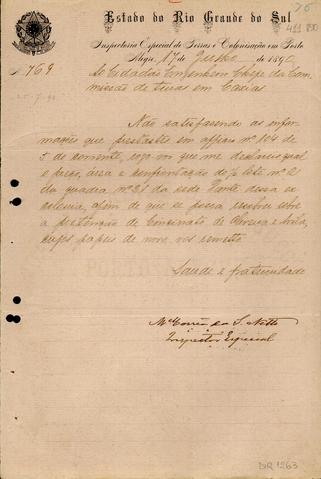 Estado do Rio Grande do Sul
Inspectoria Especial de Terras e Colonisação em Porto
Alegre, 17 de Julho de 1890
N. 769
Ao Cidadão Engenheiro Chefe da Com-
missão de terras em Caxias
Não satisfazendo as infor-
mações que prestastes em officio nº 104 de
5 do corrente, rogo vos que me declareis qual
o preço, área e confrontação do lote nº 2
da quadra nº 31 da sede Dante dessa ex
colonia, afim de que se possa resolver sobre
a pretenção de Cincinato de
cujos papeis de novo vos remetto.
Saude e fraternidade
da S. Netto
Inspector Especial
DR 1263